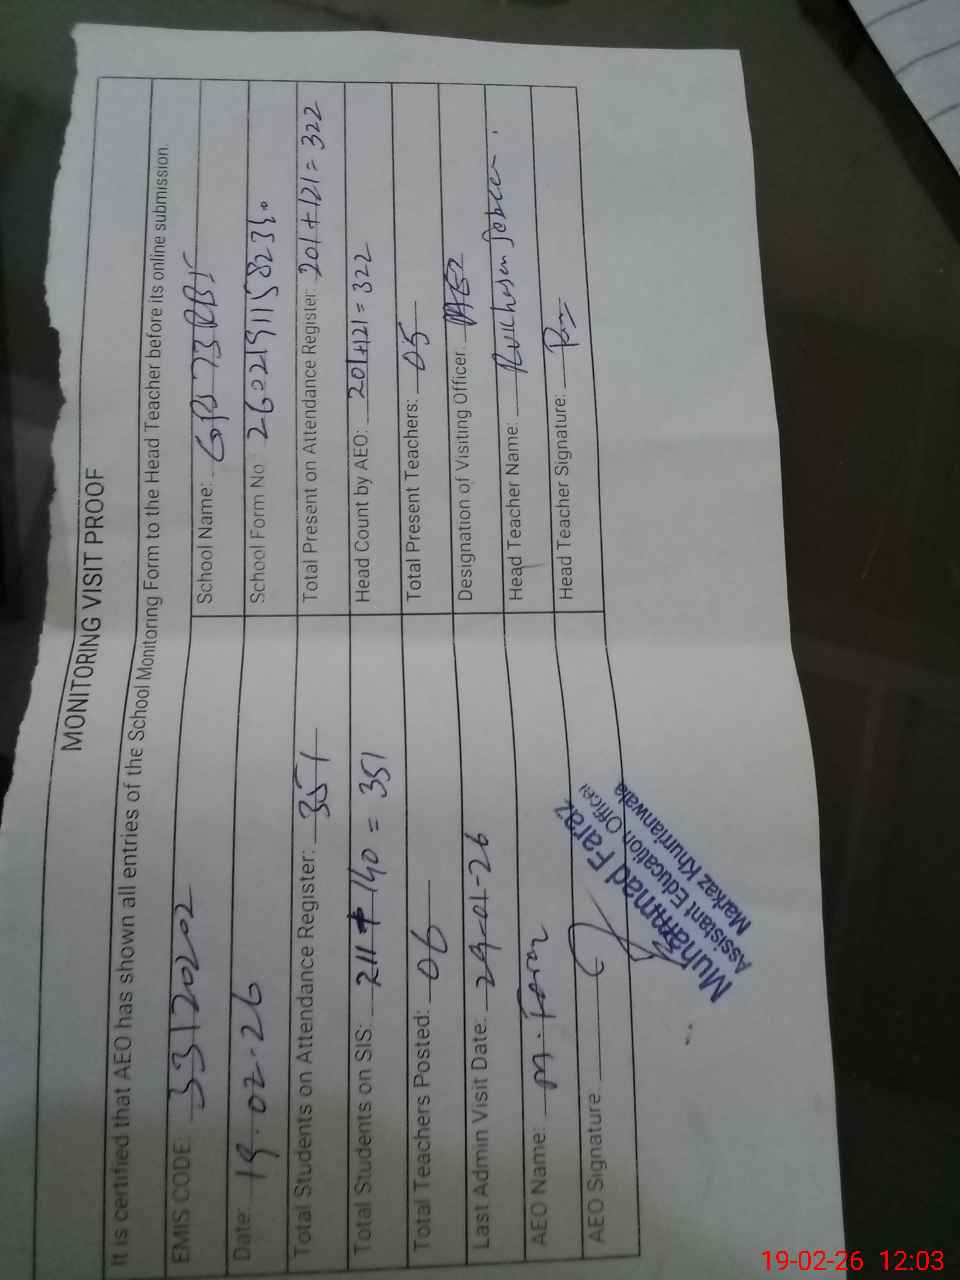 MONITORING VISIT PROOF
It is certified that AEO has shown all entries of the School Monitoring Form to the Head Teacher before its online submission.
EMIS CODE: 33120202
School Name: GPS 73 RB
Date: 19-02-26
School Form No 260219115823
Total Students on Attendance Register: 351
Total Present on Attendance Register: 201+121=322
Total Students on SIS: 211+140=351
Head Count by AEO: 201+121=322
Total Teachers Posted: 06
Total Present Teachers: 05
Last Admin Visit Date: 29-01-26
Designation of Visiting Officer:
AEO Name: M. Faraz
Head Teacher Name:
AEO Signature:
Head Teacher Signature:
Muhammad Faraz
Assistant Education Officer
Markaz Khurrianwala
19-02-26 12:03